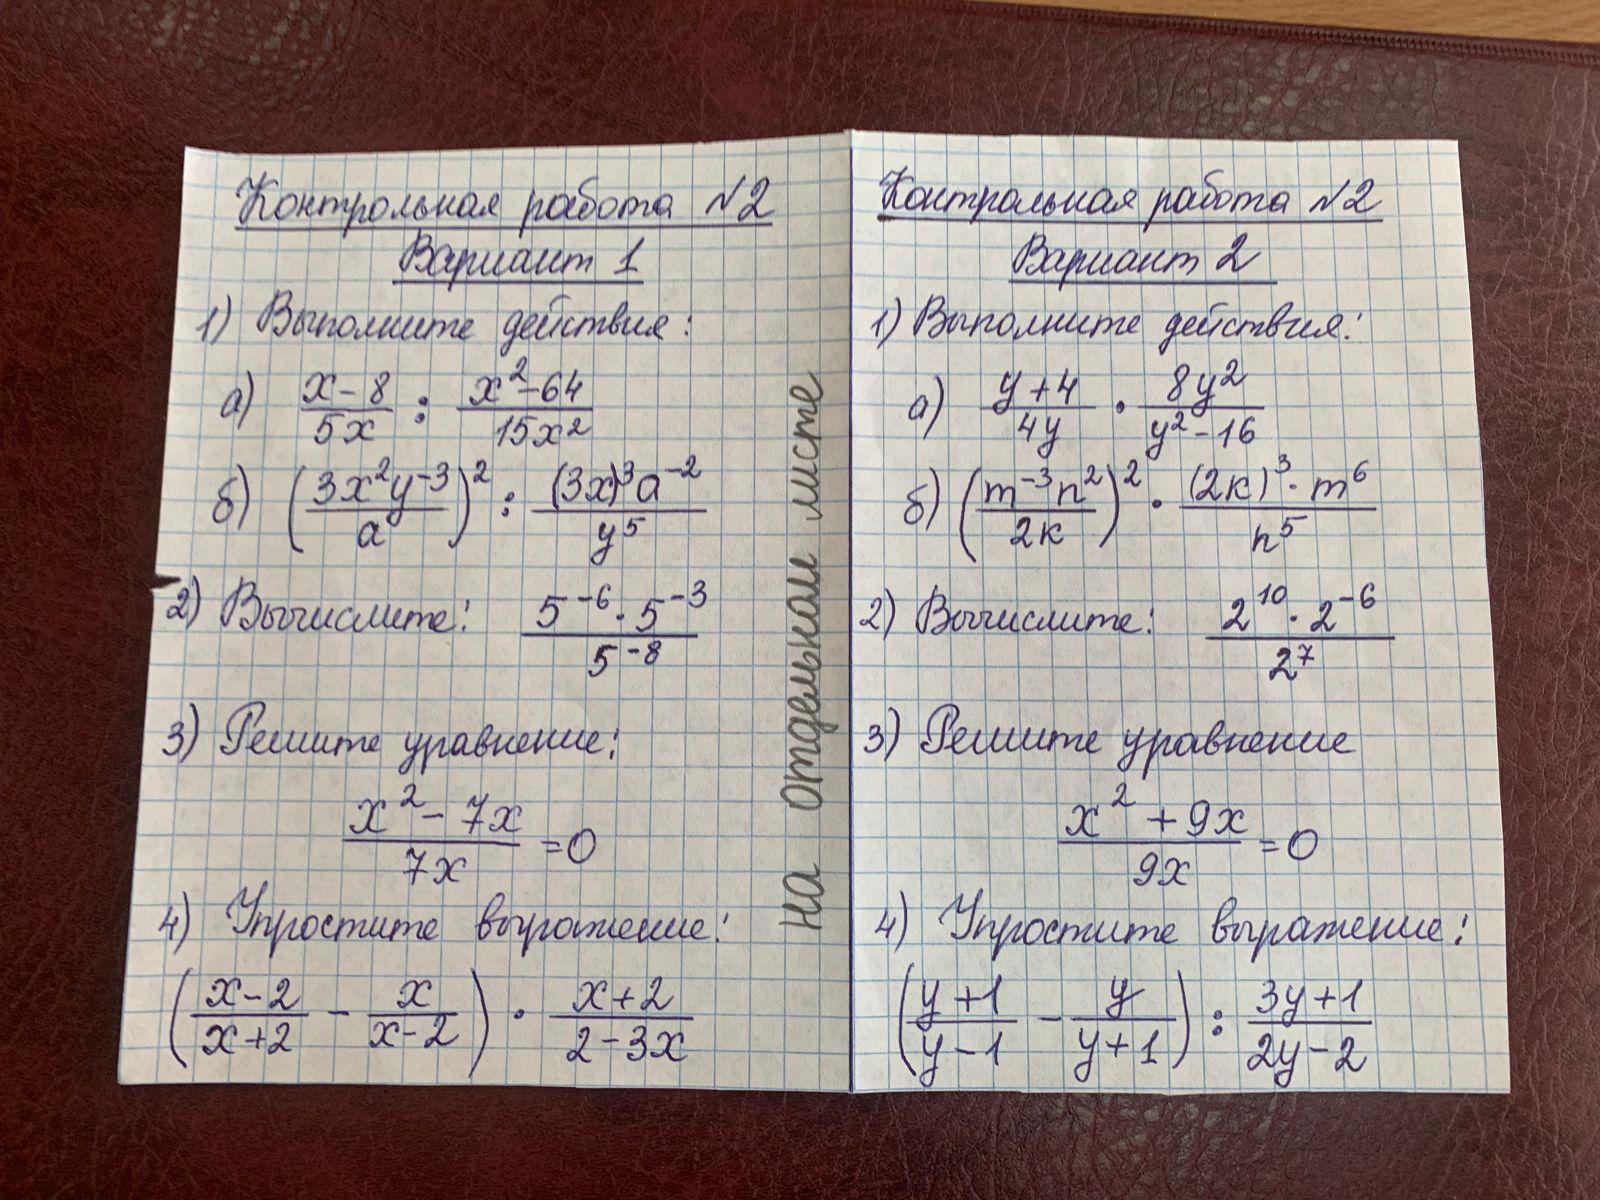 Контрольная работа №2
Вариант 1
1) Выполните действия:
а) (x-8)/(5x) : (x²-64)/(15x²)
б) ((3x²y⁻³)/a)² : ((3x)³a⁻²)/y⁵
2) Вычислите: (5⁻⁶·5⁻³)/5⁻⁸
3) Решите уравнение:
(x²-7x)/(7x) =0
4) Упростите выражение:
((x-2)/(x+2) - x/(x-2)) · (x+2)/(2-3x)
на отдельном листе
Контрольная работа №2
Вариант 2
1) Выполните действия:
а) (y+4)/(4y) · (8y²)/(y²-16)
б) ((m⁻³n²)/(2k))² · ((2k)³·m⁶)/n⁵
2) Вычислите: (2¹⁰·2⁻⁶)/2⁷
3) Решите уравнение
(x²+9x)/(9x) =0
4) Упростите выражение:
((y+1)/(y-1) - y/(y+1)) : (3y+1)/(2y-2)